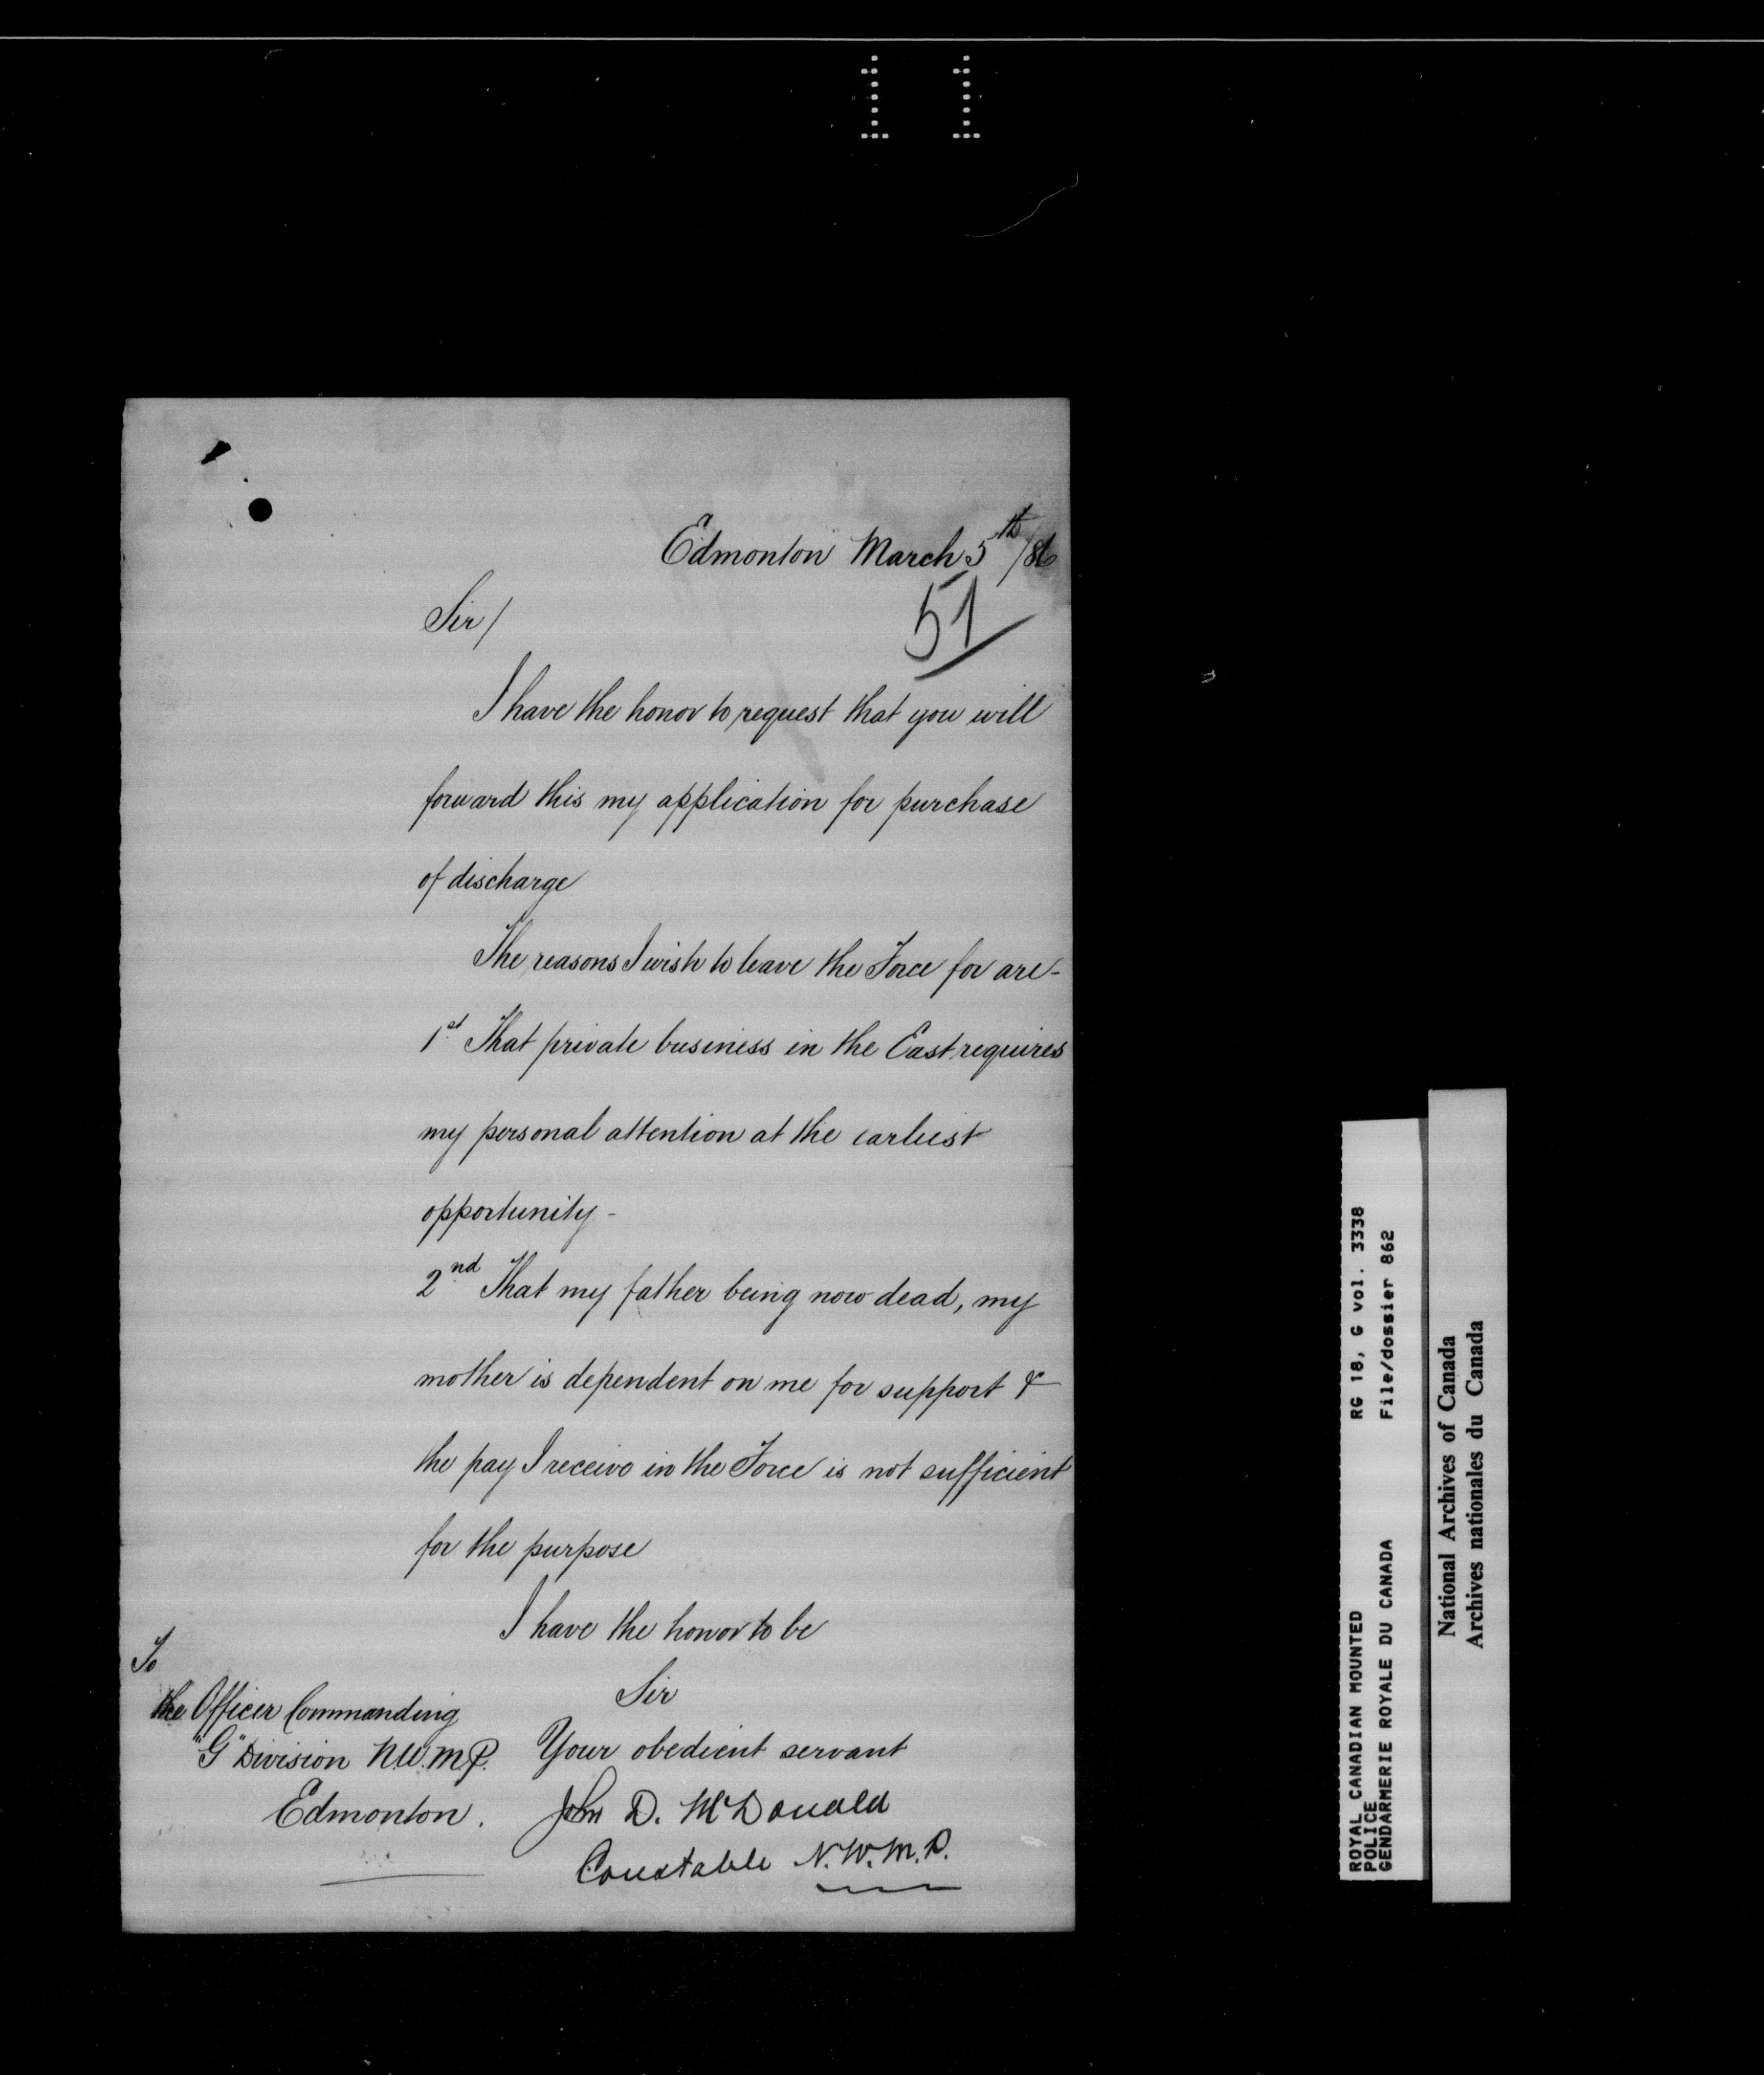 Edmonton March 5th/86
51
Sir/
I have the honor to request that you will
forward this my application for purchase
of discharge
The reasons I wish to leave the Force for are-
1st That private business in the East requires
my personal attention at the earliest
opportunity-
2nd That my father being now dead, my
mother is dependent on me for support &
the pay I receive in the Force is not sufficient
for the purpose
I have the honor to be
Sir
Your obedient servant
John D. McDonald
Constable N.W.M.P.
To
the Officer Commanding
"G" Division N.W.M.P.
Edmonton.
ROYAL CANADIAN MOUNTED RG 18, G vol. 3338
POLICE File/dossier 862
GENDARMERIE ROYALE DU CANADA
National Archives of Canada
Archives nationales du Canada